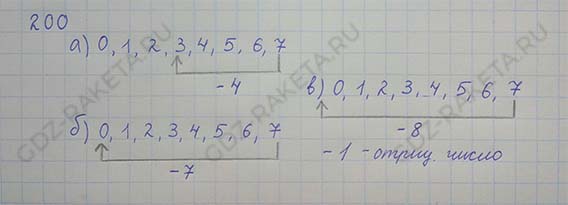 200
а) 0, 1, 2, 3, 4, 5, 6, 7
-4
б) 0, 1, 2, 3, 4, 5, 6, 7
-7
в) 0, 1, 2, 3, 4, 5, 6, 7
-8
-1 - отриц. число
GDZ-RAKETA.RU
GDZ-RAKETA.RU
GDZ-RAKETA.RU
GDZ-RAKETA.RU